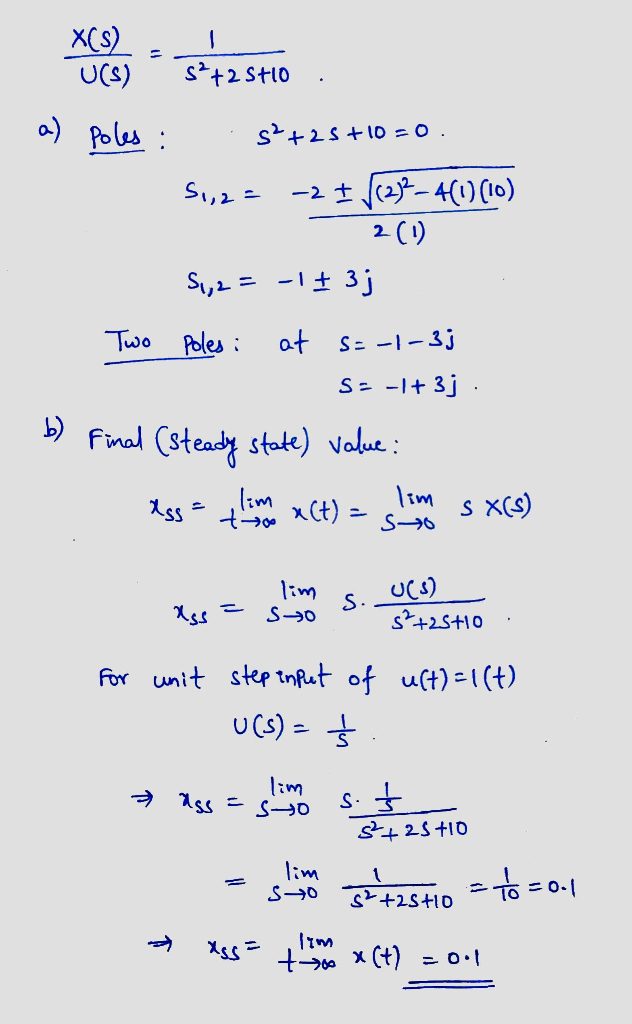 X(s)/U(s) = 1/(s²+2s+10) .
a) Poles : s²+2s+10=0 .
s₁,₂ = (-2 ± √((2)²-4(1)(10)))/(2(1))
s₁,₂ = -1 ± 3j
Two Poles : at s= -1-3j
s= -1+3j .
b) Final (steady state) value :
xss = lim t→∞ x(t) = lim s→0 s X(s)
xss = lim s→0 s. U(s)/(s²+2s+10) .
For unit step input of u(t)=1(t)
U(s) = 1/s .
⇒ xss = lim s→0 (s. 1/s)/(s²+2s+10)
= lim s→0 1/(s²+2s+10) = 1/10 = 0.1
⇒ xss = lim t→∞ x(t) = 0.1